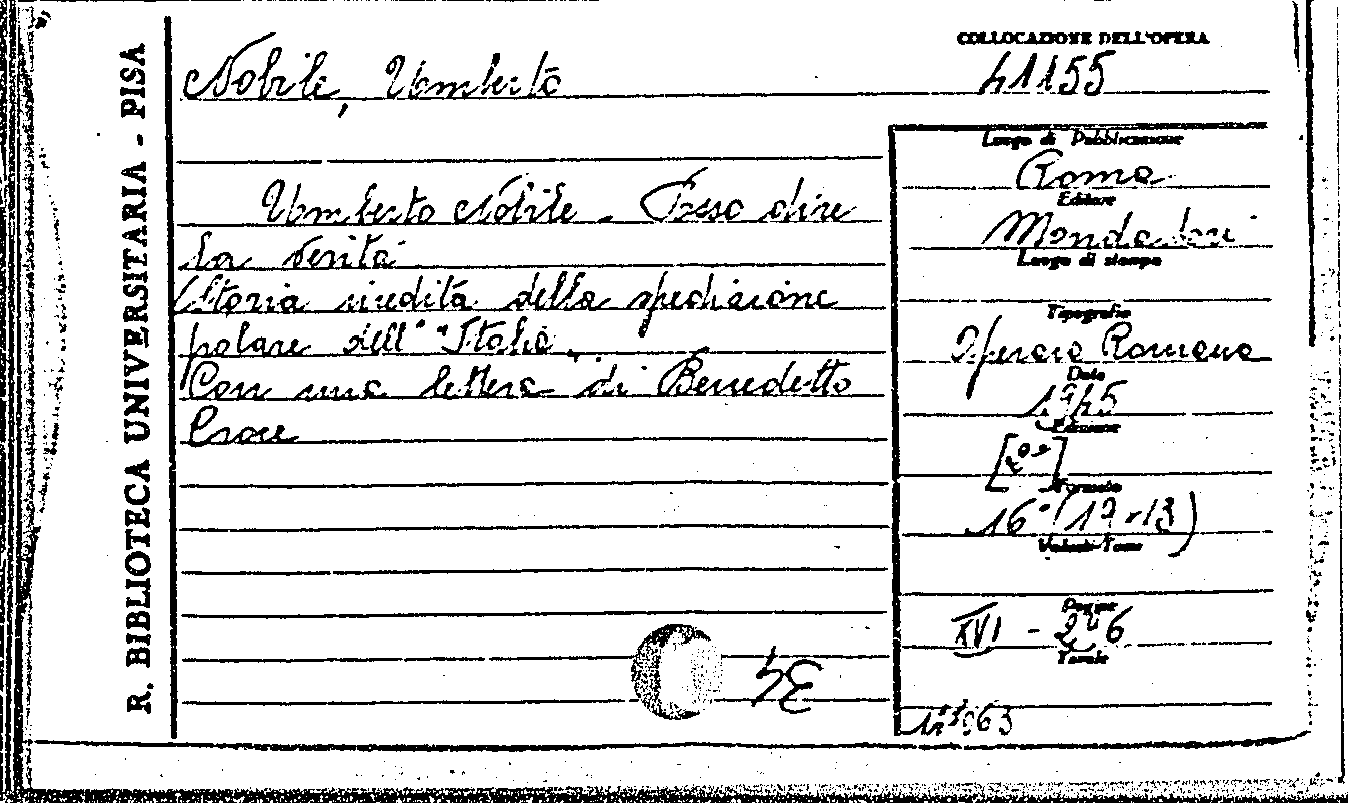 R. BIBLIOTECA UNIVERSITARIA - PISA
Nobile, Umberto
Umberto Nobile - Posso dire
la verità
Storia inedita della spedizione
polare dell' "Italia"
Con una lettera di Benedetto
Croce
COLLOCAZIONE DELL'OPERA
41155
Luogo di Pubblicazione
Roma
Editore
Mondadori
Luogo di stampa
Tipografia
Operaia Romana
Data
1945
Edizione
Formato
16° (19×13)
Volumi-Tomi
Pagine
XVI - 246
Tavole